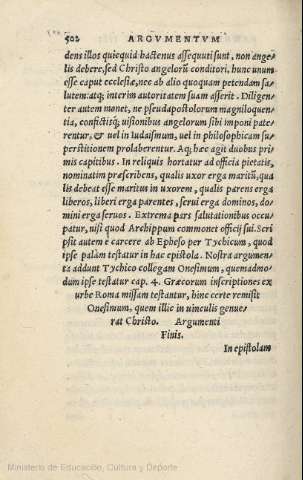 502 ARGVMENTVM
dens illos quicquid hactenus assequuti sunt, non ange
lis debere, sed Christo angelorũ conditori, hunc unum
esse caput ecclesiæ, nec ab alio quoquam petendam sa
lutem: atq; interim autoritatem suam asserit. Diligen
ter autem monet, ne pseudapostolorum magniloquen
tia, confictisq; uisionibus angelorum sibi imponi pate
rentur, & uel in Iudaismum, uel in philosophicam su
perstitionem prolaberentur. Atq; hæc agit duobus pri
mis capitibus. In reliquis hortatur ad officia pietatis,
nominatim præscribens, qualis uxor erga maritũ, qua
lis debeat esse maritus in uxorem, qualis parens erga
liberos, liberi erga parentes, serui erga dominos, do=
mini erga seruos. Extrema pars salutationibus occu
patur, nisi quod Archippum commonet officij sui. Scri
psit autem è carcere ab Epheso per Tychicum, quod
ipse palàm testatur in hac epistola. Nostra argumen=
ta addunt Tychico collegam Onesimum, quemadmo=
dum ipse testatur cap. 4. Græcorum inscriptiones ex
urbe Roma missam testantur, hinc certe remisit
Onesimum, quem illic in uinculis genue=
rat Christo. Argumenti
Finis.
In epistolam
Ministerio de Educación, Cultura y Deporte